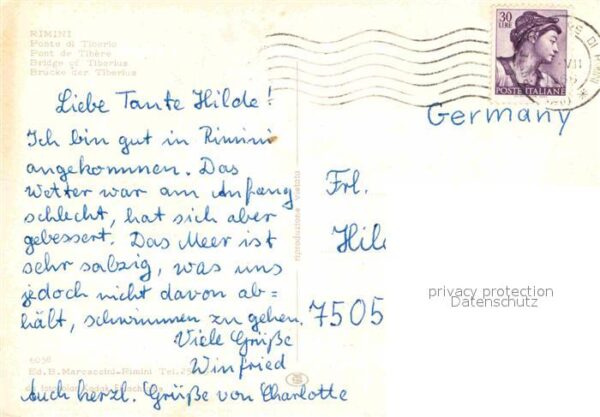 RIMINI
Ponte di Tiberio
Pont de Tibère
Bridge of Tiberius
Brücke der Tiberius
30
LIRE
POSTE ITALIANE
Germany
Liebe Tante Hilde!
Ich bin gut in Rimini
angekommen. Das
Wetter war am Anfang
schlecht, hat sich aber
gebessert. Das Meer ist
sehr salzig, was uns
jedoch nicht davon ab=
hält, schwimmen zu gehen.
Viele Grüße
Winfried
Auch herzl. Grüße von Charlotte
Frl.
Hil
7505
privacy protection
Datenschutz
riproduzione vietata
6038
Ed. B. Marcaccini - Rimini Tel.
Kodak